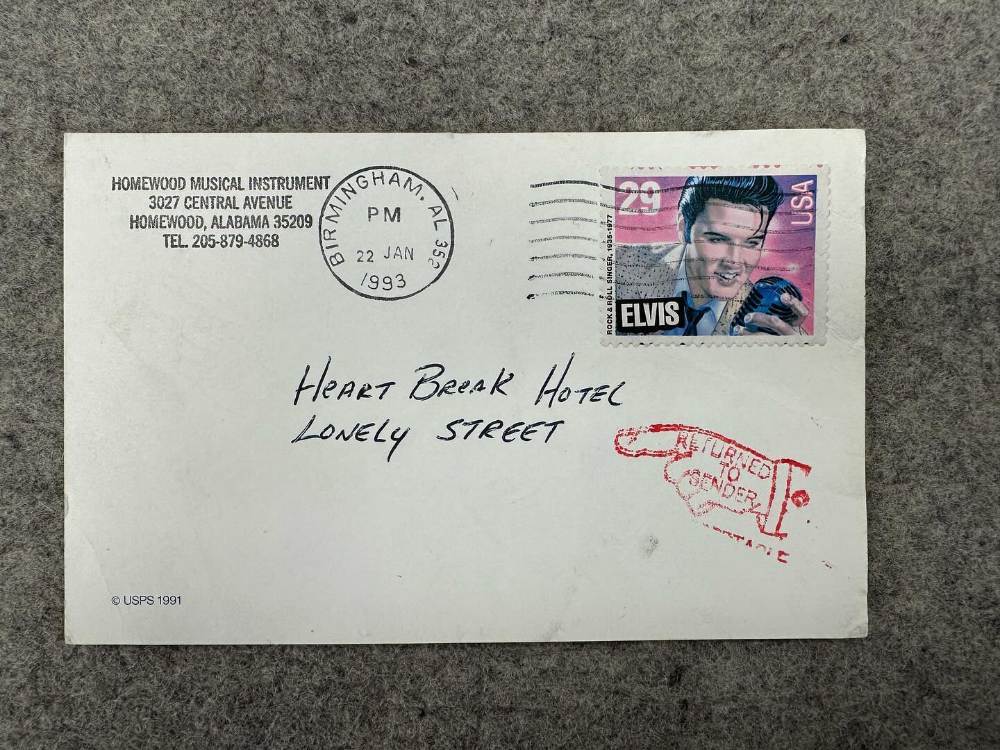 HOMEWOOD MUSICAL INSTRUMENT
3027 CENTRAL AVENUE
HOMEWOOD, ALABAMA 35209
TEL. 205-879-4868
BIRMINGHAM, AL 352
PM
22 JAN
1993
29
USA
ROCK & ROLL SINGER, 1935-1977
ELVIS
HEART BREAK HOTEL
LONELY STREET
RETURNED
TO
SENDER
© USPS 1991